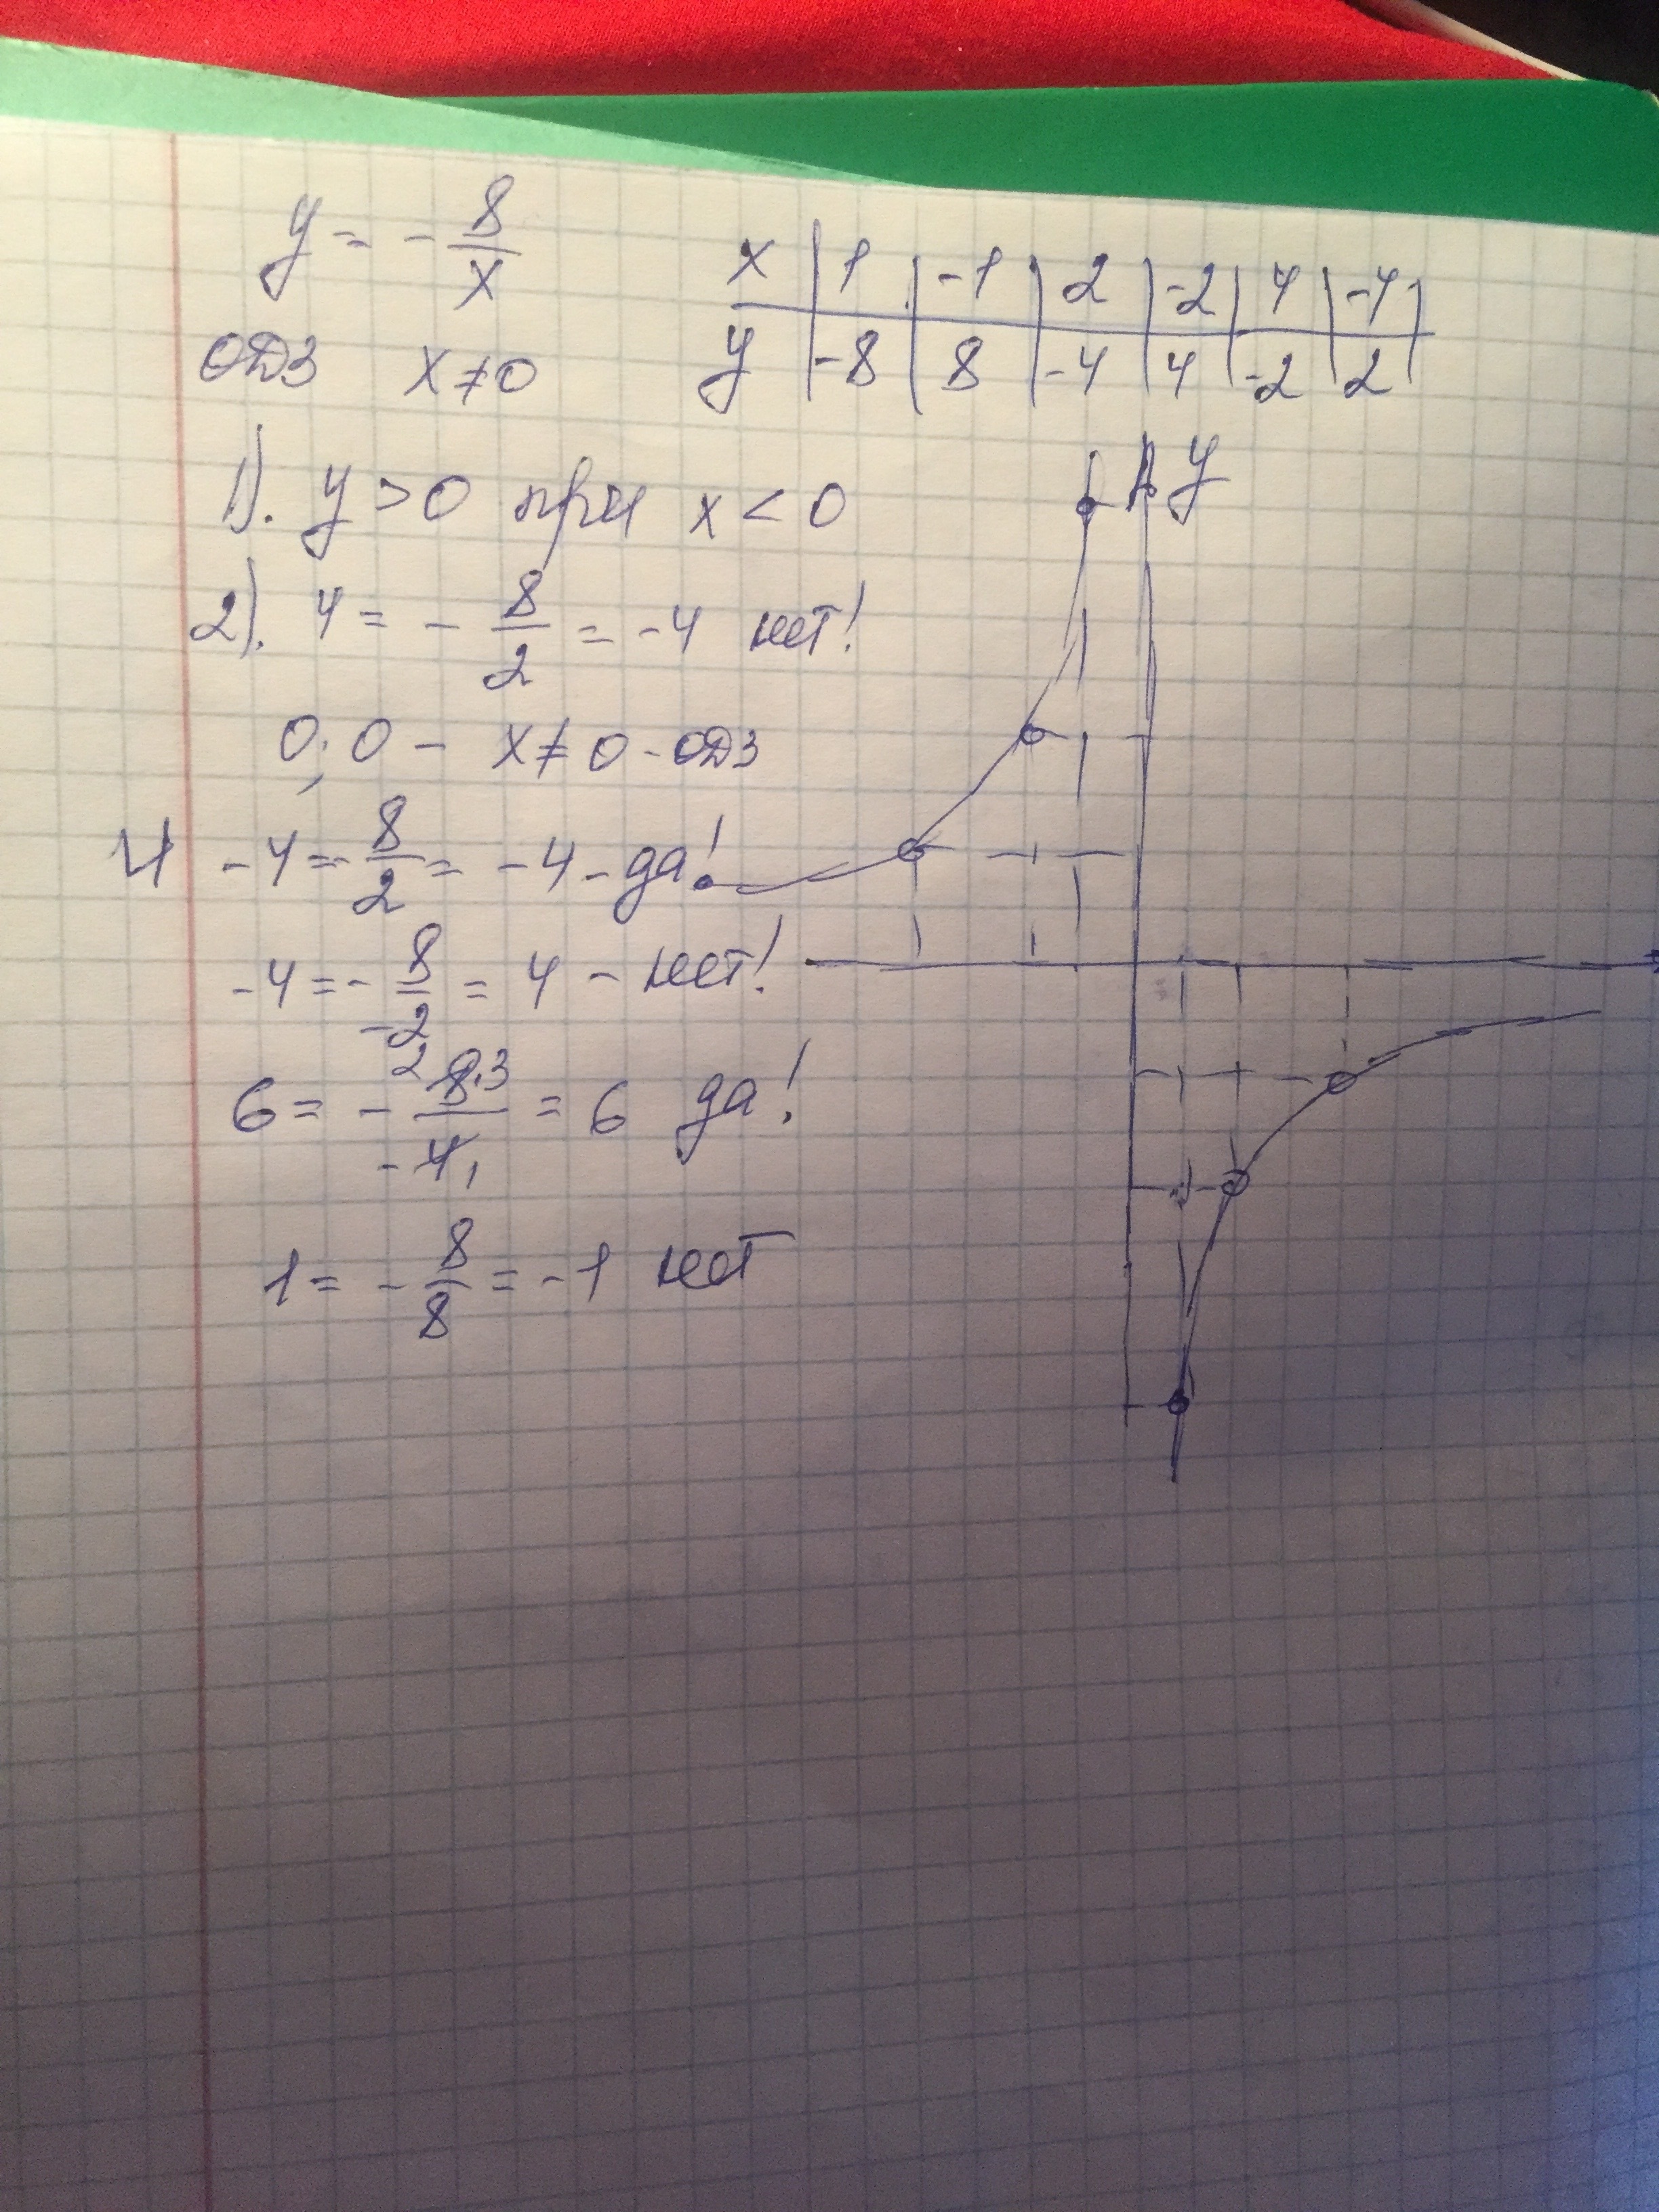 y = - 8/x
x | 1 | -1 | 2 | -2 | 4 | -4 |
y | -8 | 8 | -4 | 4 | -2 | 2 |
ОДЗ x ≠ 0
y
1). y > 0 при x < 0
2). 4 = - 8/2 = -4 нет!
0; 0 - x ≠ 0 - ОДЗ
и -4 = - 8/2 = -4 - да!
-4 = - 8/-2 = 4 - нет!
6 = - 8·3/-4 = 6 да!
1 = - 8/8 = -1 нет